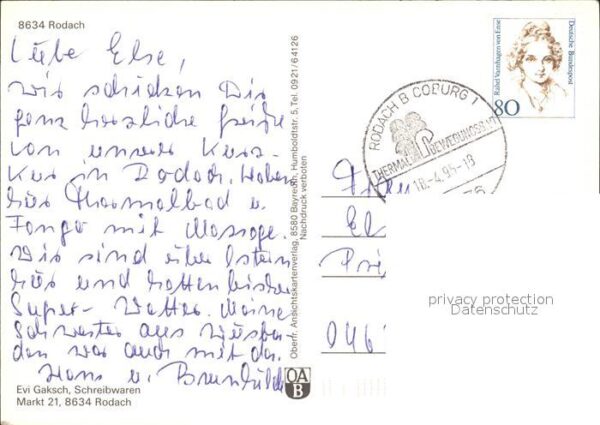 8634 Rodach
Liebe Else,
wir schicken Dir
ganz herzliche Grüße
von unserer Kurz-
Kur in Rodach. Haben
hier Thermalbad u.
Fango mit Massage.
Wir sind über Ostern
hier und hatten bisher
Super-Wetter. Meine
Schwester aus Wiesba-
den war auch mit da.
Hans u. Brunhilde
Evi Gaksch, Schreibwaren
Markt 21, 8634 Rodach
Oberfr. Ansichtskartenverlag, 8580 Bayreuth, Humboldtstr. 5, Tel. 09 21/6 41 26
Nachdruck verboten
OAB
RODACH B COBURG 1
THERMAL BEWEGUNGSBAD
18.-4.95-18
Rahel Varnhagen von Ense
Deutsche Bundespost
80
Frau
El
Pri
046
privacy protection
Datenschutz